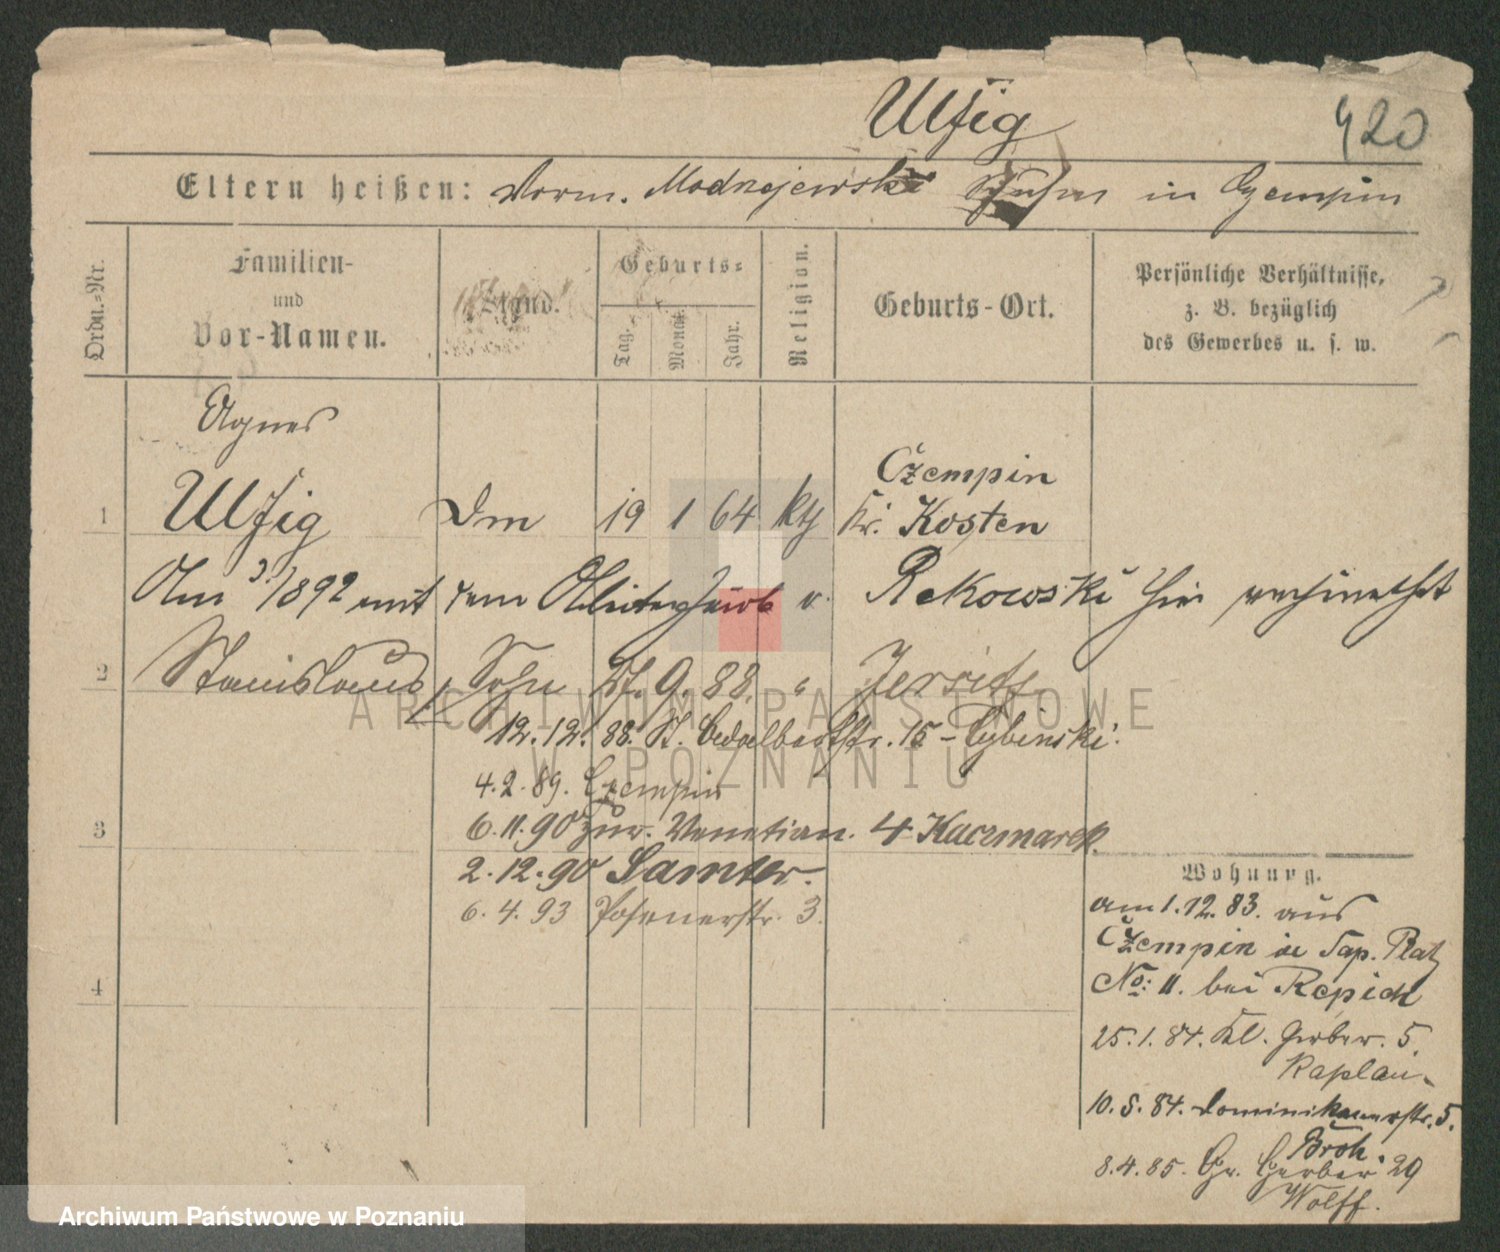 Ulfig
420
Eltern heißen: Vorm. Modrzejewski in Czempin
Ordn.-Nr.
Familien-
und
Vor-Namen.
Stand.
Geburts-
Tag.
Monat.
Jahr.
Religion.
Geburts-Ort.
Persönliche Verhältnisse,
z. B. bezüglich
des Gewerbes u. s. w.
Agnes
Czempin
1 Ulfig Dm 19 1 64 kth Kr. Kosten
Am 1892 mit dem v. Rekowski hier verheirathet
2 Stanislaus, Sohn 9. 88. " Jersitz
12. 12. 88. St. Adalbertstr. 15 - Cybinski.
4. 2. 89. Czempin
3 6. 11. 90 zur. Venetian. 4 Kaczmarek.
2. 12. 90 Samter.
6. 4. 93 Posenerstr. 3.
4
Wohnung.
am 1. 12. 83. aus
Czempin in Sap. Platz
No: 11. bei Repich
25. 1. 84. Kl. Gerber. 5.
Kaplan
10. 5. 84. Dominikanerstr. 5.
Broh.
8. 4. 85. Gr. Gerber 29
Wolff.
ARCHIWUM PAŃSTWOWE
W POZNANIU
Archiwum Państwowe w Poznaniu